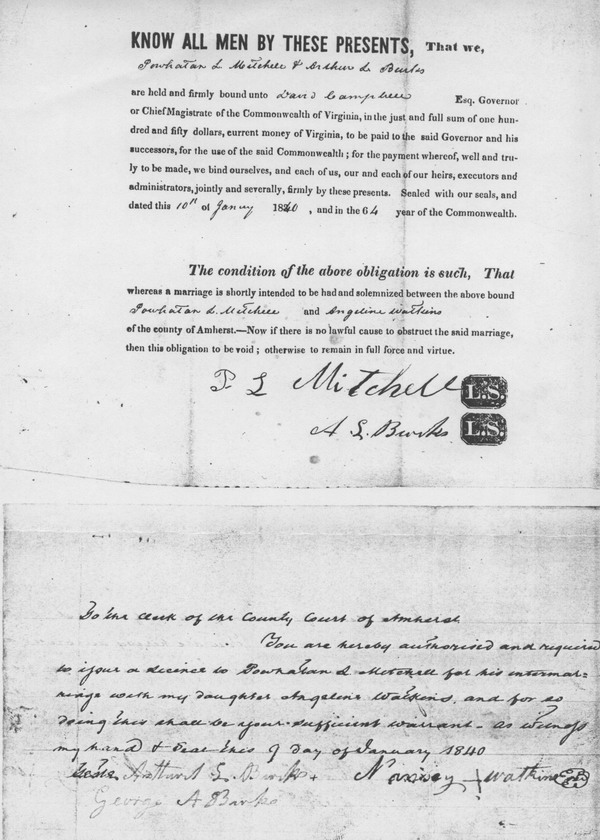 KNOW ALL MEN BY THESE PRESENTS, That we,
Powhatan L Mitchell & Arthur L Burks
are held and firmly bound unto David Campbell Esq. Governor
or Chief Magistrate of the Commonwealth of Virginia, in the just and full sum of one hun-
dred and fifty dollars, current money of Virginia, to be paid to the said Governor and his
successors, for the use of the said Commonwealth; for the payment whereof, well and tru-
ly to be made, we bind ourselves, and each of us, our and each of our heirs, executors and
administrators, jointly and severally, firmly by these presents. Sealed with our seals, and
dated this 10th of Janvy 1840 , and in the 64 year of the Commonwealth.
The condition of the above obligation is such, That
whereas a marriage is shortly intended to be had and solemnized between the above bound
Powhatan L. Mitchell and Angeline Watkins
of the county of Amherst.—Now if there is no lawful cause to obstruct the said marriage,
then this obligation to be void; otherwise to remain in full force and virtue.
P L Mitchell L.S.
A L Burks L.S.
To the clerk of the County Court of Amherst
You are hereby authorised and required
to issue a licince to Powhatan L Mitchell for his intermar=
riage with my daughter Angeline Watkins, and for so
doing this shall be your sufficient warrant - as witness
my hand & seal this 9 day of January 1840
Teste Arthur L. Burks + Nancy + Watkins
George A Burks